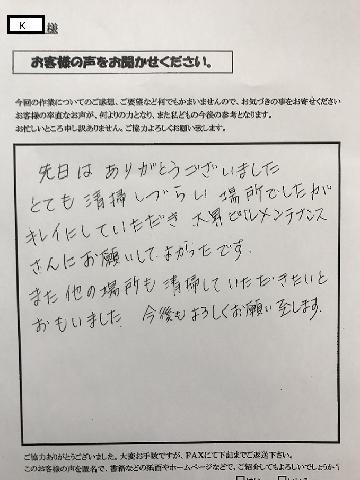 K 様
お客様の声をお聞かせください。
今回の作業についてのご感想、ご要望など何でもかまいませんので、お気づきの事をお寄せください
お客様の率直なお声が、何よりの力となり、また私どもの今後の参考となります。
お忙しいところ申し訳ありません。ご協力よろしくお願い致します。
先日は ありがとうございました
とても 清掃しづらい 場所でしたが
キレイにしていただき 大昇ビルメンテナンス
さんにお願いして よかったです.
また 他の場所も 清掃して いただきたいと
おもいました 今後もよろしくお願い至します.
ご協力ありがとうございました。大変お手数ですが、FAXにて下記までご返送下さい。
このお客様の声を匿名で、書籍などの紙面やホームページなどで、ご紹介してもよろしいでしょうか